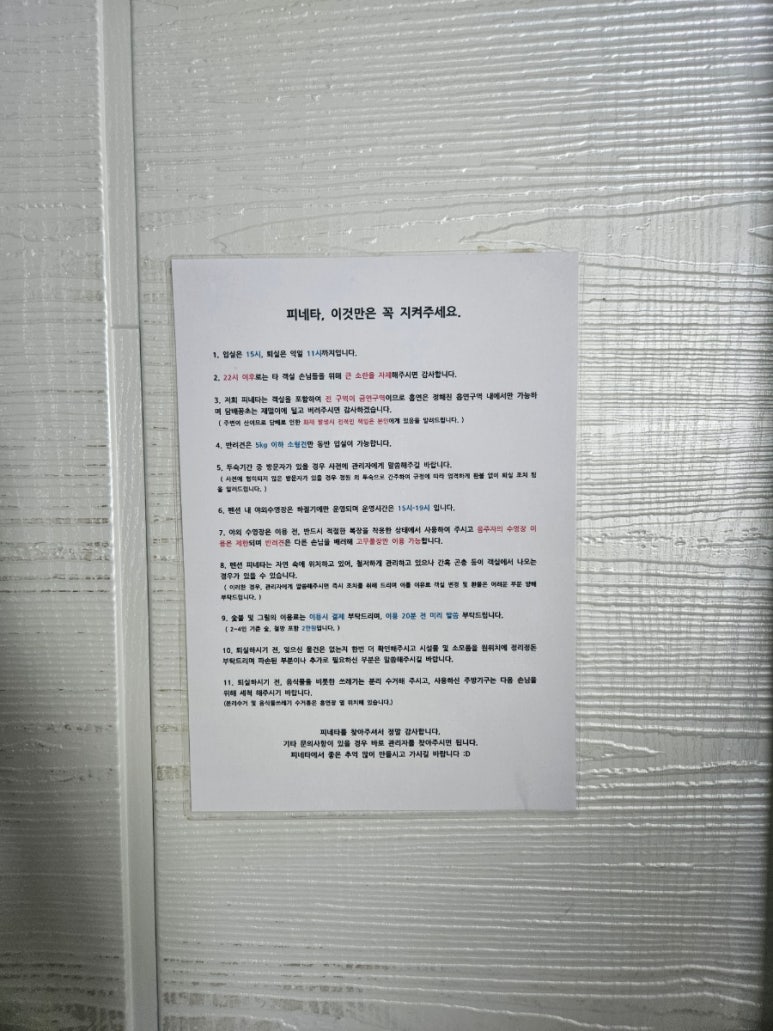 피네타, 이것만은 꼭 지켜주세요.
1. 입실은 15시, 퇴실은 익일 11시까지입니다.
2. 22시 이후로는 타 객실 손님들을 위해 큰 소란을 자제해주시면 감사합니다.
3. 저희 피네타는 객실을 포함하여 전 구역이 금연구역이므로 흡연은 정해진 흡연구역 내에서만 가능하
며 담배꽁초는 재떨이에 털고 버려주시면 감사하겠습니다.
( 주변이 산이므로 담배로 인한 화재 발생시 전적인 책임은 본인에게 있음을 알려드립니다. )
4. 반려견은 5kg 이하 소형견만 동반 입실이 가능합니다.
5. 투숙기간 중 방문자가 있을 경우 사전에 관리자에게 말씀해주길 바랍니다.
( 사전에 협의되지 않은 방문자가 있을 경우 정원 외 투숙으로 간주하여 규정에 따라 엄격하게 환불 없이 퇴실 조치 됨
을 알려드립니다. )
6. 펜션 내 야외수영장은 하절기에만 운영되며 운영시간은 15시-19시 입니다.
7. 야외 수영장은 이용 전, 반드시 적절한 복장을 착용한 상태에서 사용하여 주시고 음주자의 수영장 이
용은 제한되며 반려견은 다른 손님을 배려해 고무풀장만 이용 가능합니다.
8. 펜션 피네타는 자연 속에 위치하고 있어, 철저하게 관리하고 있으나 간혹 곤충 등이 객실에서 나오는
경우가 있을 수 있습니다.
( 이러한 경우, 관리자에게 말씀해주시면 즉시 조치를 취해 드리며 이를 이유로 객실 변경 및 환불은 어려운 부분 양해
부탁드립니다. )
9. 숯불 및 그릴의 이용료는 이용시 결제 부탁드리며, 이용 20분 전 미리 말씀 부탁드립니다.
( 2-4인 기준 숯, 철망 포함 2만원입니다. )
10. 퇴실하시기 전, 잊으신 물건은 없는지 한번 더 확인해주시고 시설물 및 소모품을 원위치에 정리정돈
부탁드리며 파손된 부분이나 추가로 필요하신 부분은 말씀해주시길 바랍니다.
11. 퇴실하시기 전, 음식물을 비롯한 쓰레기는 분리 수거해 주시고, 사용하신 주방기구는 다음 손님을
위해 세척 해주시기 바랍니다.
(분리수거 및 음식물쓰레기 수거통은 흡연장 옆 위치해 있습니다.)
피네타를 찾아주셔서 정말 감사합니다.
기타 문의사항이 있을 경우 바로 관리자를 찾아주시면 됩니다.
피네타에서 좋은 추억 많이 만들시고 가시길 바랍니다 :D